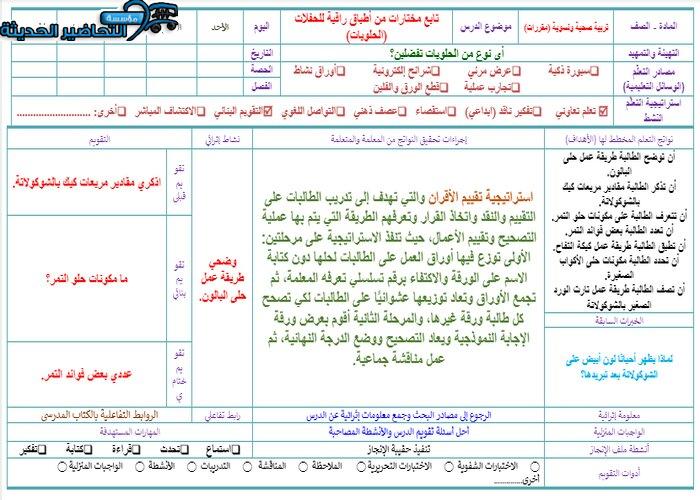 مؤسسة
التحاضير الحديثة
المادة - الصف
تربية صحية ونسوية (مقررات)
موضوع الدرس
تابع مختارات من أطباق راقية للحفلات
(الحلويات)
اليوم
الأحد
التهيئة والتمهيد
أى نوع من الحلويات تفضلين؟
التاريخ
مصادر التعلم
(الوسائل التعليمية)
سبورة ذكية
عرض مرئي
شرائح إلكترونية
أوراق نشاط
تجارب عملية
قطع الورق والفلين
الحصة
الفصل
استراتيجية التعلم
النشط
تعلم تعاوني
تفكير ناقد (ابداعي)
استقصاء
عصف ذهني
التواصل اللغوي
التقويم البنائي
الاكتشاف المباشر
أخرى: ..........................
نواتج التعلم المخطط لها (الأهداف)
إجراءات تحقيق النواتج من المعلمة والمتعلمة
نشاط إثرائي
التقويم
أن توضح الطالبة طريقة عمل حلى
البالون.
أن تذكر الطالبة مقادير مربعات كيك
بالشوكولاتة.
أن تتعرف الطالبة على مكونات حلو التمر.
أن تعدد الطالبة بعض فوائد التمر.
أن تطبق الطالبة طريقة عمل كيكة التفاح.
أن تحدد الطالبة مكونات حلى الأكواب
الصغيرة.
أن تصف الطالبة طريقة عمل تارت الورد
الصغير بالشوكولاتة
الخبرات السابقة
لماذا يظهر أحيانًا لون أبيض على
الشوكولاتة بعد تبريدها؟
استراتيجية تقييم الأقران والتي تهدف إلى تدريب الطالبات على
التقييم والنقد واتخاذ القرار وتعرفهم الطريقة التي يتم بها عملية
التصحيح وتقييم الأعمال، حيث تنفذ الاستراتيجية على مرحلتين:
الأولى توزع فيها أوراق العمل على الطالبات لحلها دون كتابة
الاسم على الورقة والاكتفاء برقم تسلسلي تعرفه المعلمة، ثم
تجمع الأوراق وتعاد توزيعها عشوائيًا على الطالبات لكي تصحح
كل طالبة ورقة غيرها، والمرحلة الثانية أقوم بعرض ورقة
الإجابة النموذجية ويعاد التصحيح ووضع الدرجة النهائية، ثم
عمل مناقشة جماعية.
وضحي
طريقة عمل
حلى البالون.
تقو
يم
قبلي
اذكري مقادير مربعات كيك بالشوكولاتة.
تقو
يم
بنائي
ما مكونات حلو التمر؟
تقو
يم
ختام
ي
عددي بعض فوائد التمر.
معلومة إثرائية
الرجوع إلى مصادر البحث وجمع معلومات إثرائية عن الدرس
رابط تفاعلي
الروابط التفاعلية بالكتاب المدرسي
الواجبات المنزلية
أحل أسئلة تقويم الدرس والأنشطة المصاحبة
المهارات المستهدفة
أنشطة ملف الإنجاز
تنفيذ حقيبة الإنجاز
استماع
تحدث
قراءة
كتابة
تفكير
أدوات التقويم
الاختبارات الشفوية
الاختبارات التحريرية
الملاحظة
المناقشة
التدريبات
الأنشطة
الواجبات المنزلية
أخرى..............